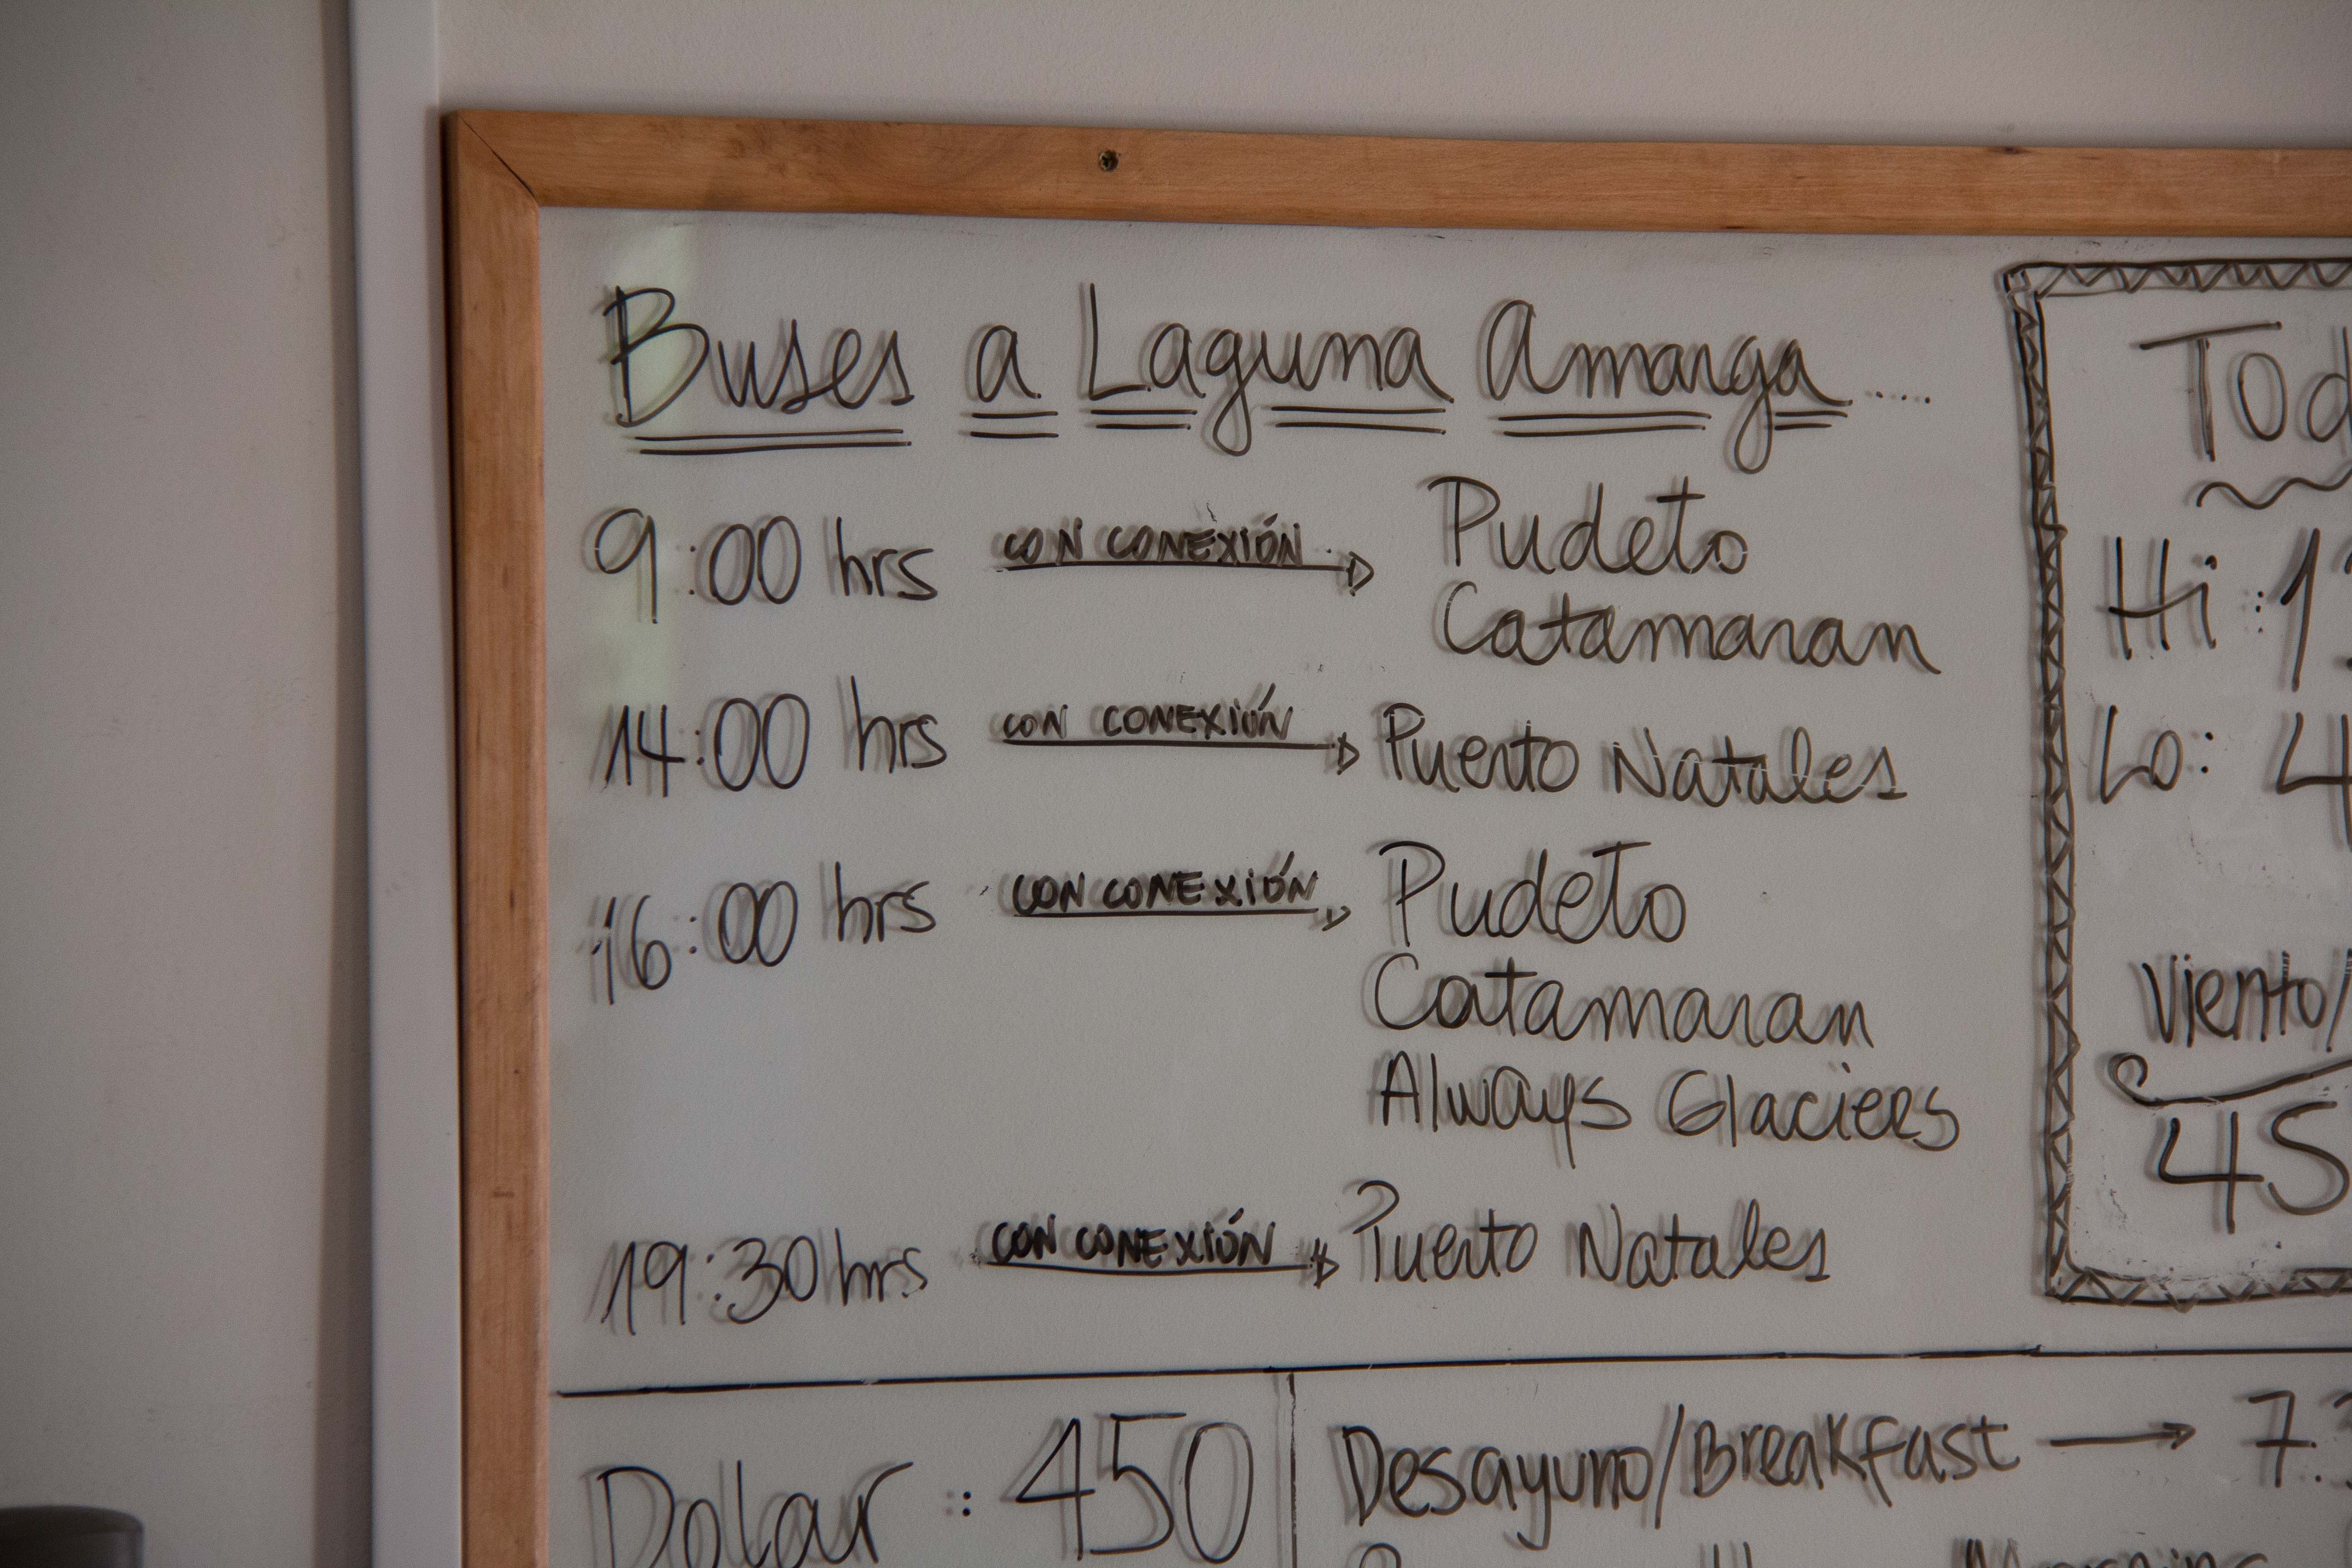 Buses a Laguna Amarga.....
9:00 hrs CON CONEXIÓN Pudeto
Catamaran
14:00 hrs CON CONEXIÓN Puerto Natales
16:00 hrs CON CONEXIÓN Pudeto
Catamaran
Always Glaciers
19:30 hrs CON CONEXIÓN Puerto Natales
Hi: 1
Lo: 4
Viento/
45
Dolar: 450
Desayuno/Breakfast 7:3